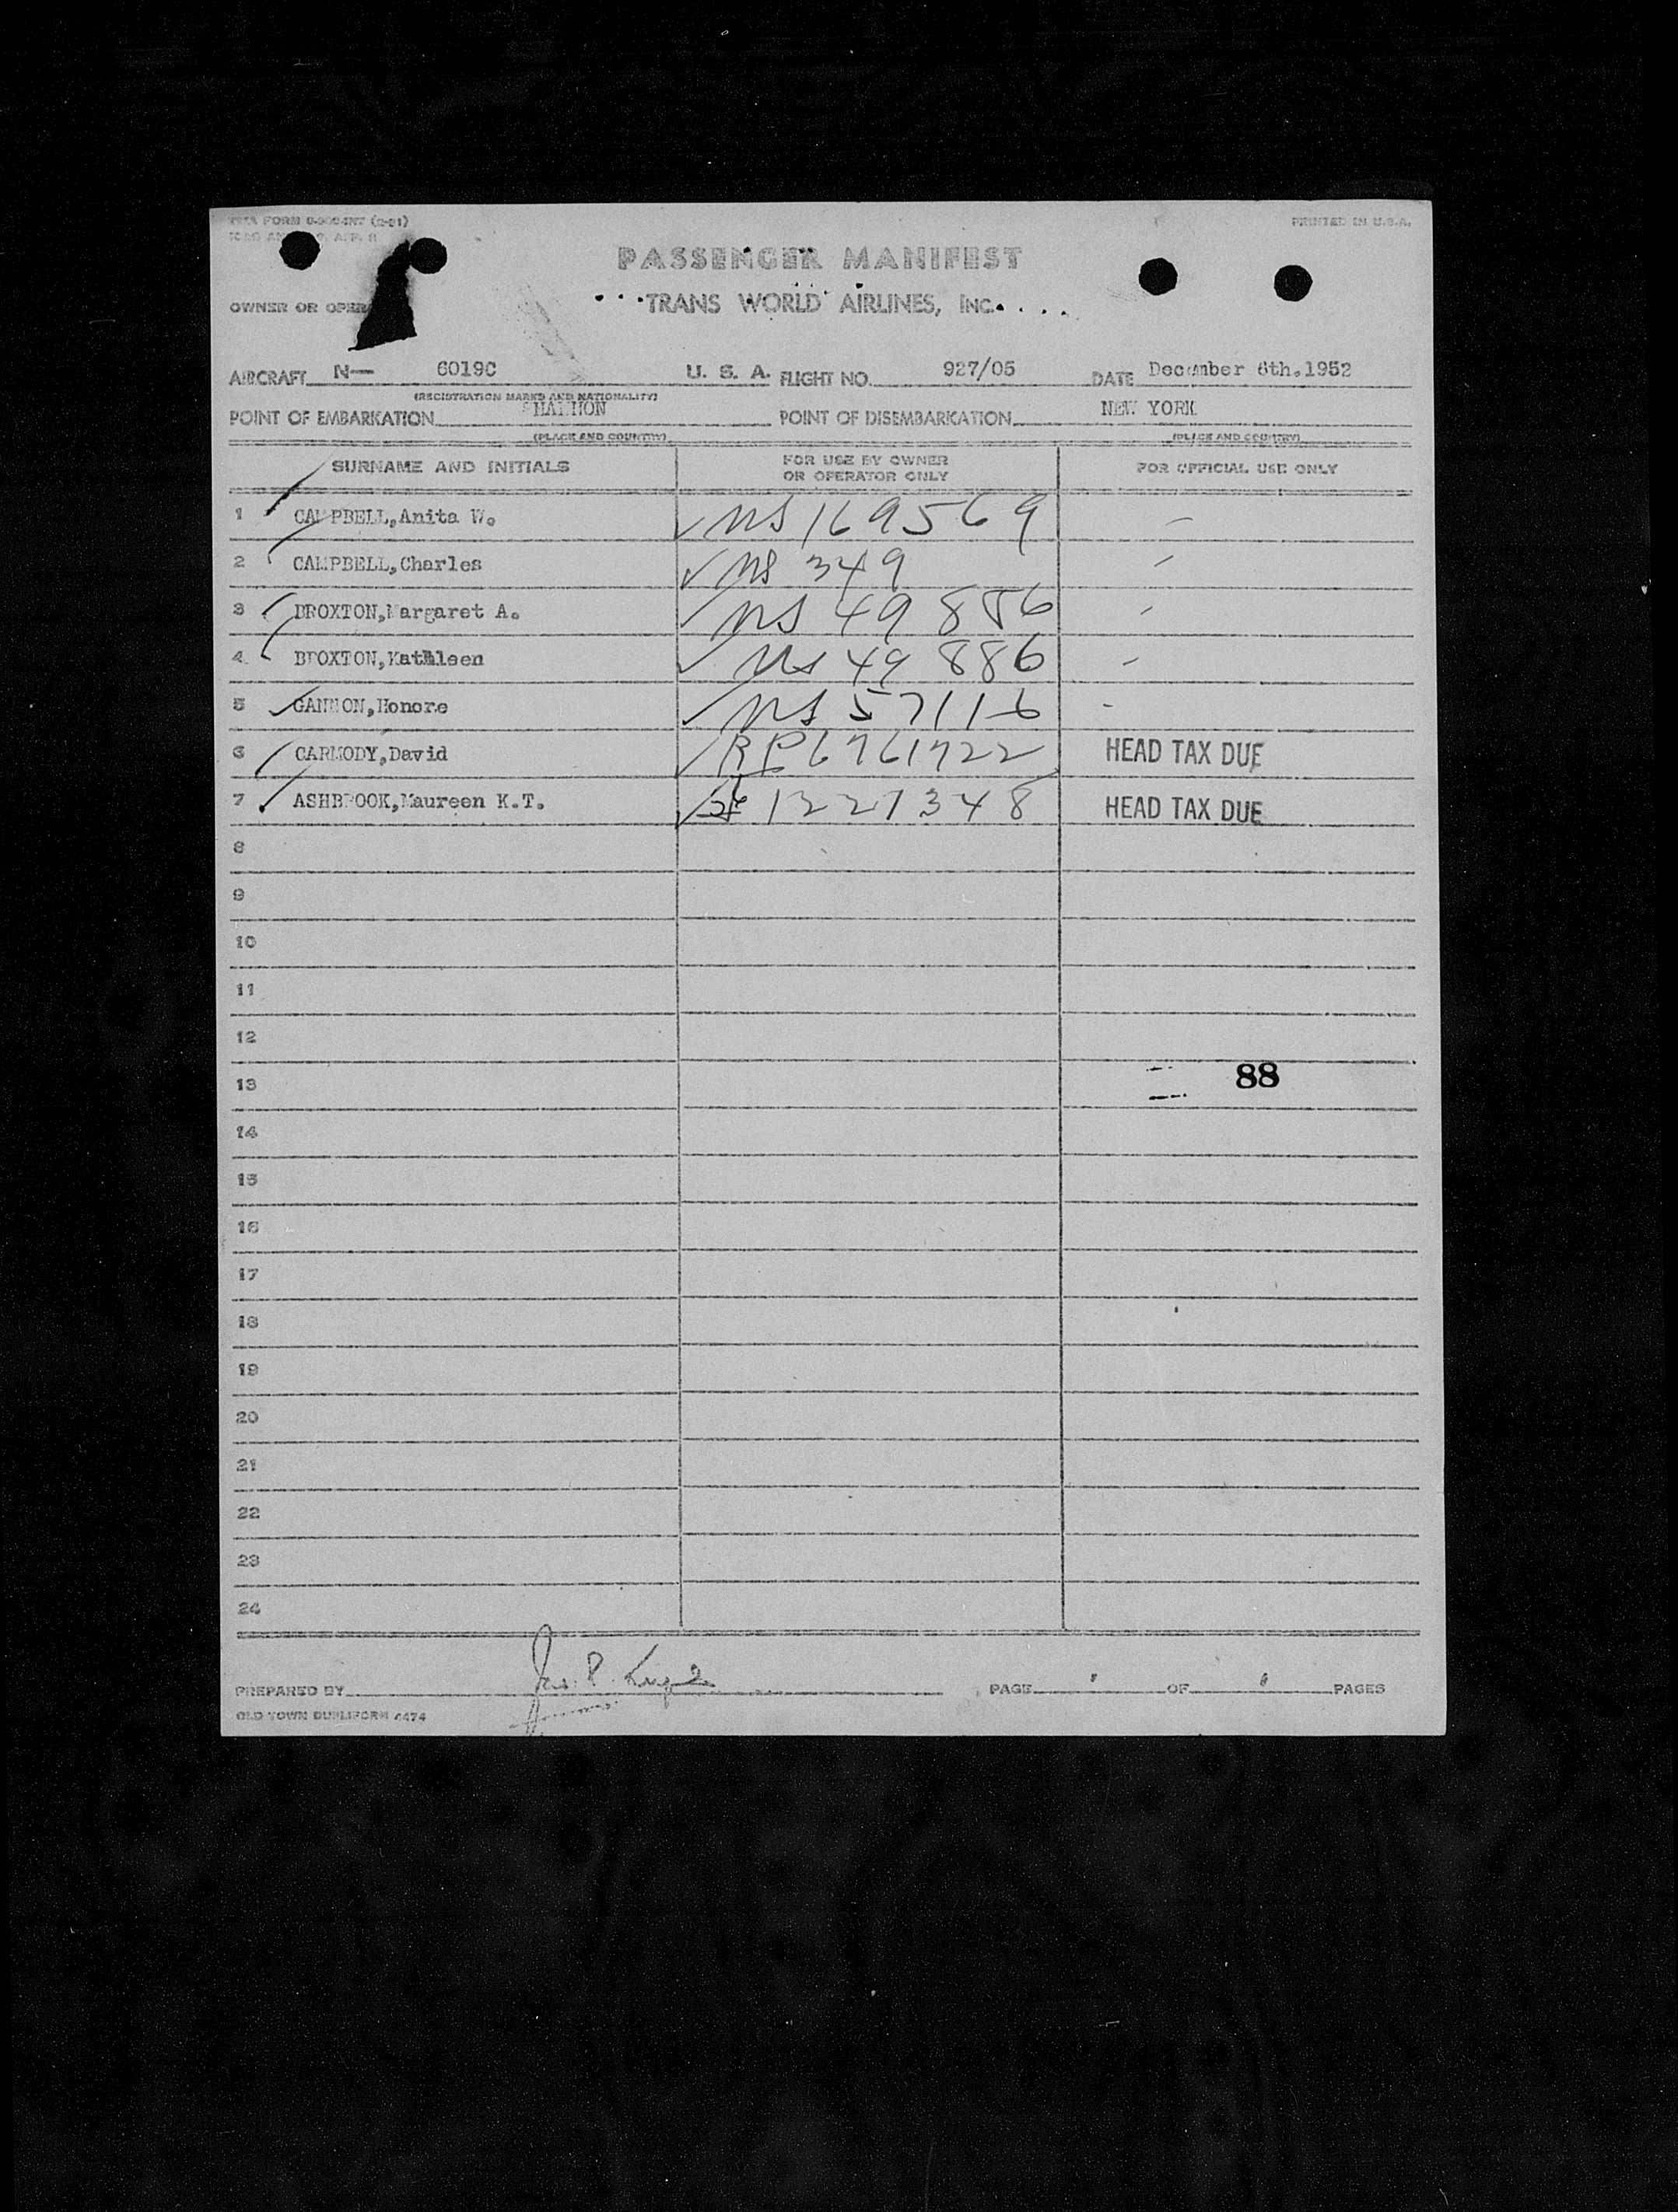 TWA FORM (2-51) PRINTED IN U.S.A.
PASSENGER MANIFEST
OWNER OR OPERA TRANS WORLD AIRLINES, INC.
AIRCRAFT N— 6019C U. S. A. FLIGHT NO. 927/05 DATE December 6th.1952
(REGISTRATION MARKS AND NATIONALITY)
POINT OF EMBARKATION SHANNON POINT OF DISEMBARKATION NEW YORK
(PLACE AND COUNTRY) (PLACE AND COUNTRY)
SURNAME AND INITIALS FOR USE BY OWNER OR OPERATOR ONLY FOR OFFICIAL USE ONLY
1 CAMPBELL,Anita W. ✓ NS 169569 –
2 CAMPBELL,Charles ✓ NS 349 –
3 BROXTON,Margaret A. ✓ NS 49 886 –
4 BROXTON,Kathleen ✓ NS 49 886 –
5 GANNON,Honore ✓ NS 57116 -
6 CARMODY,David ✓ RP 6761722 HEAD TAX DUE
7 ASHBROOK,Maureen K.T. ✓ 1221348 HEAD TAX DUE
8
9
10
11
12
13 88
14
15
16
17
18
19
20
21
22
23
24
PREPARED BY PAGE OF PAGES
OLD TOWN DUPLIFORM 4474